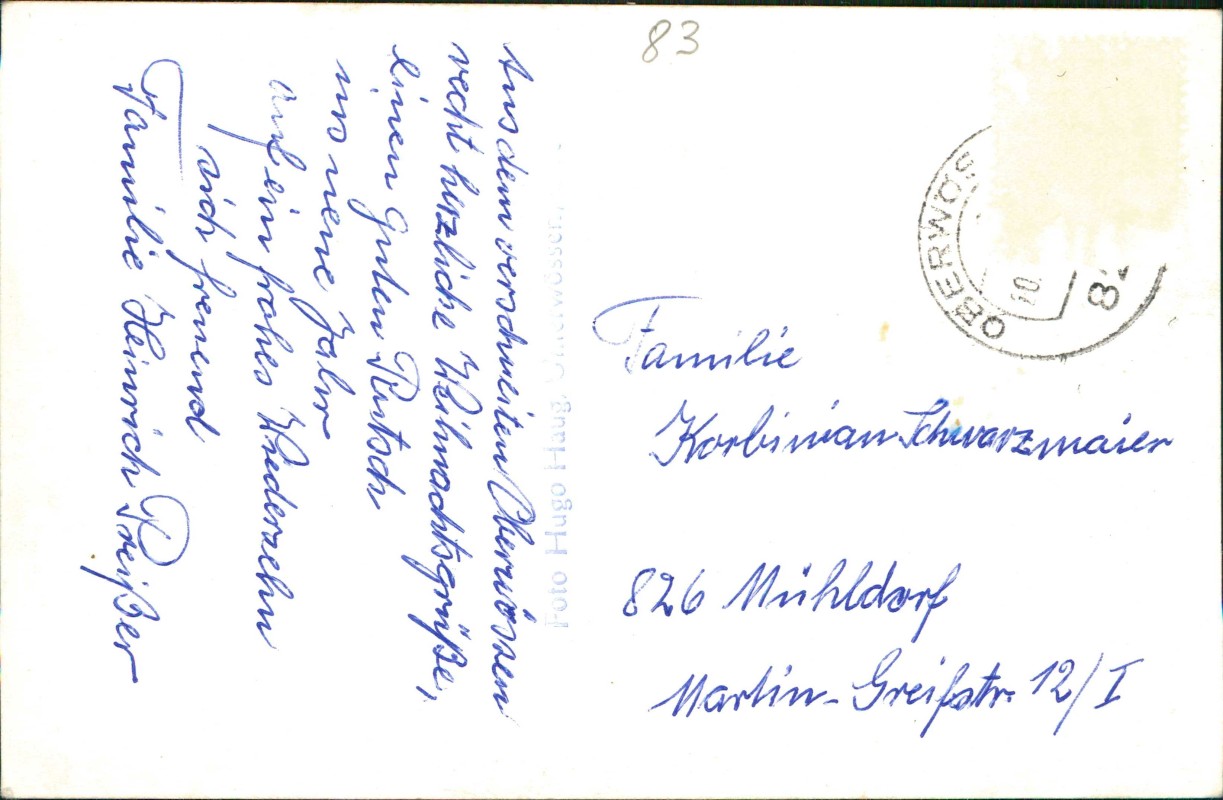 83
Aus dem verschneiten Oberwössen
recht herzliche Weihnachtsgrüße,
einen guten Rutsch
ins neue Jahr
auf ein frohes Wiedersehn
sich freuend
Familie Heinrich Preißer
Foto Hugo Haug, Oberwössen
OBERWÖS
10.
82
Familie
Korbinian Schwarzmaier
826 Mühldorf
Martin-Greifstr. 12/I